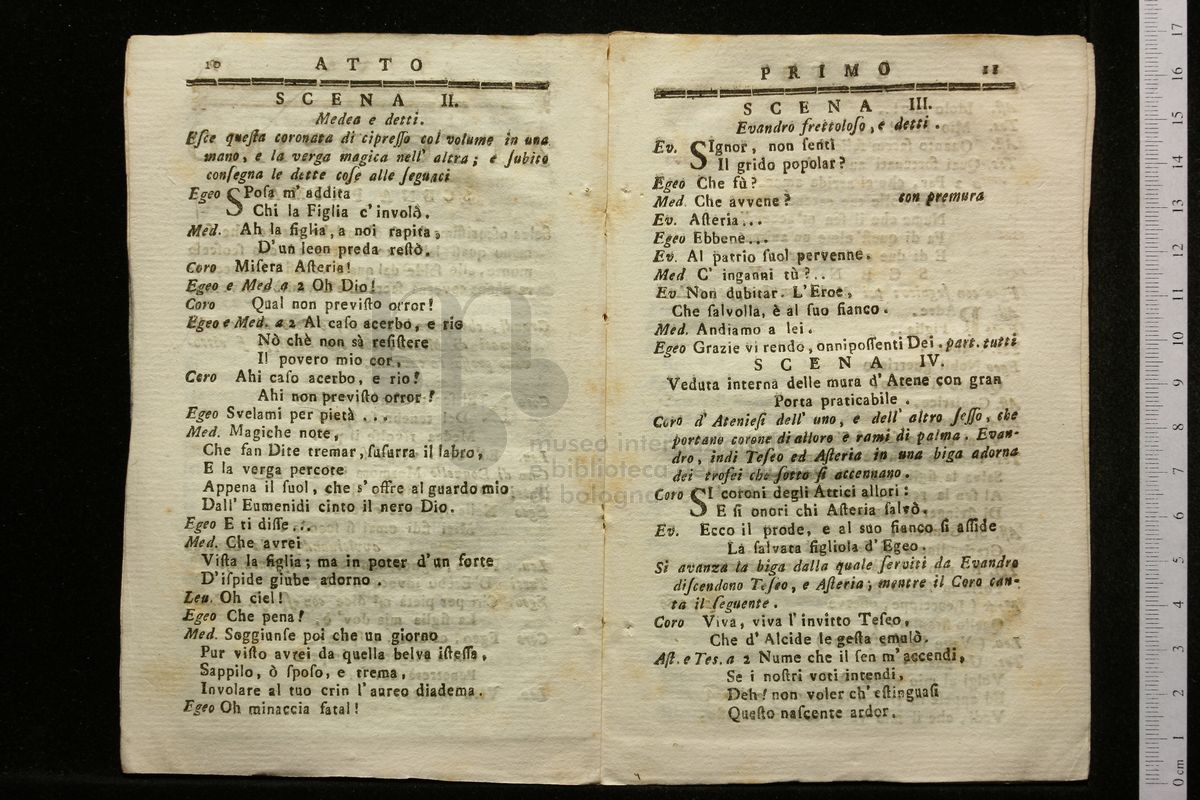 10 ATTO
SCENA II.
Medea e detti.
Eſce queſta coronata di cipreſſo col volume in una
mano, e la verga magica nell' altra; e ſubito
conſegna le dette coſe alle ſeguaci
Egeo SPoſa m' addita
Chi la Figlia c' involò.
Med. Ah la figlia, a noi rapita,
D'un leon preda reſtò.
Coro Miſera Aſteria!
Egeo e Med a 2 Oh Dio!
Coro Qual non previſto orror!
Egeo e Med. a 2 Al caſo acerbo, e rio
Nò chè non sà reſiſtere
Il povero mio cor,
Coro Ahi caſo acerbo, e rio!
Ahi non previſto orror!
Egeo Svelami per pietà ...
Med. Magiche note,
Che fan Dite tremar, ſuſurra il labro,
E la verga percote
Appena il ſuol, che s' offre al guardo mio
Dall' Eumenidi cinto il nero Dio.
Egeo E ti diſſe...
Med. Che avrei
Viſta la figlia; ma in poter d'un forte
D'iſpide giube adorno.
Leu. Oh ciel!
Egeo Che pena!
Med. Soggiunſe poi che un giorno
Pur viſto avrei da quella belva iſteſſa,
Sappilo, ò ſpoſo, e trema,
Involare al tuo crin l'aureo diadema.
Egeo Oh minaccia fatal!
PRIMO 11
SCENA III.
Evandro frettoloſo, e detti.
Ev. SIgnor, non ſenti
Il grido popolar?
Egeo Che fù?
Med. Che avvene? con premura
Ev. Aſteria...
Egeo Ebbene...
Ev. Al patrio ſuol pervenne.
Med C' inganni tù?..
Ev Non dubitar. L'Eroe,
Che ſalvolla, è al ſuo fianco.
Med. Andiamo a lei.
Egeo Grazie vi rendo, onnipoſſenti Dei. part. tutti
SCENA IV.
Veduta interna delle mura d' Atene con gran
Porta praticabile.
Coro d' Atenieſi dell' uno, e dell' altro ſeſſo, che
portano corone di alloro e rami di palma. Evan-
dro, indi Teſeo ed Aſteria in una biga adorna
dei trofei che ſotto ſi accennano.
Coro SI coroni degli Attici allori:
E ſi onori chi Aſteria ſalvò.
Ev. Ecco il prode, e al ſuo fianco ſi aſſide
La ſalvata figliola d' Egeo.
Si avanza la biga dalla quale ſerviti da Evandro
diſcendono Teſeo, e Aſteria; mentre il Coro can-
ta il ſeguente.
Coro Viva, viva l' invitto Teſeo,
Che d' Alcide le geſta emulò.
Aſt. e Tes. a 2 Nume che il ſen m'accendi,
Se i noſtri voti intendi,
Deh! non voler ch' eſtinguaſi
Queſto naſcente ardor.
museo inter
e biblioteca
di bologna
0 cm 1 2 3 4 5 6 7 8 9 10 11 12 13 14 15 16 17